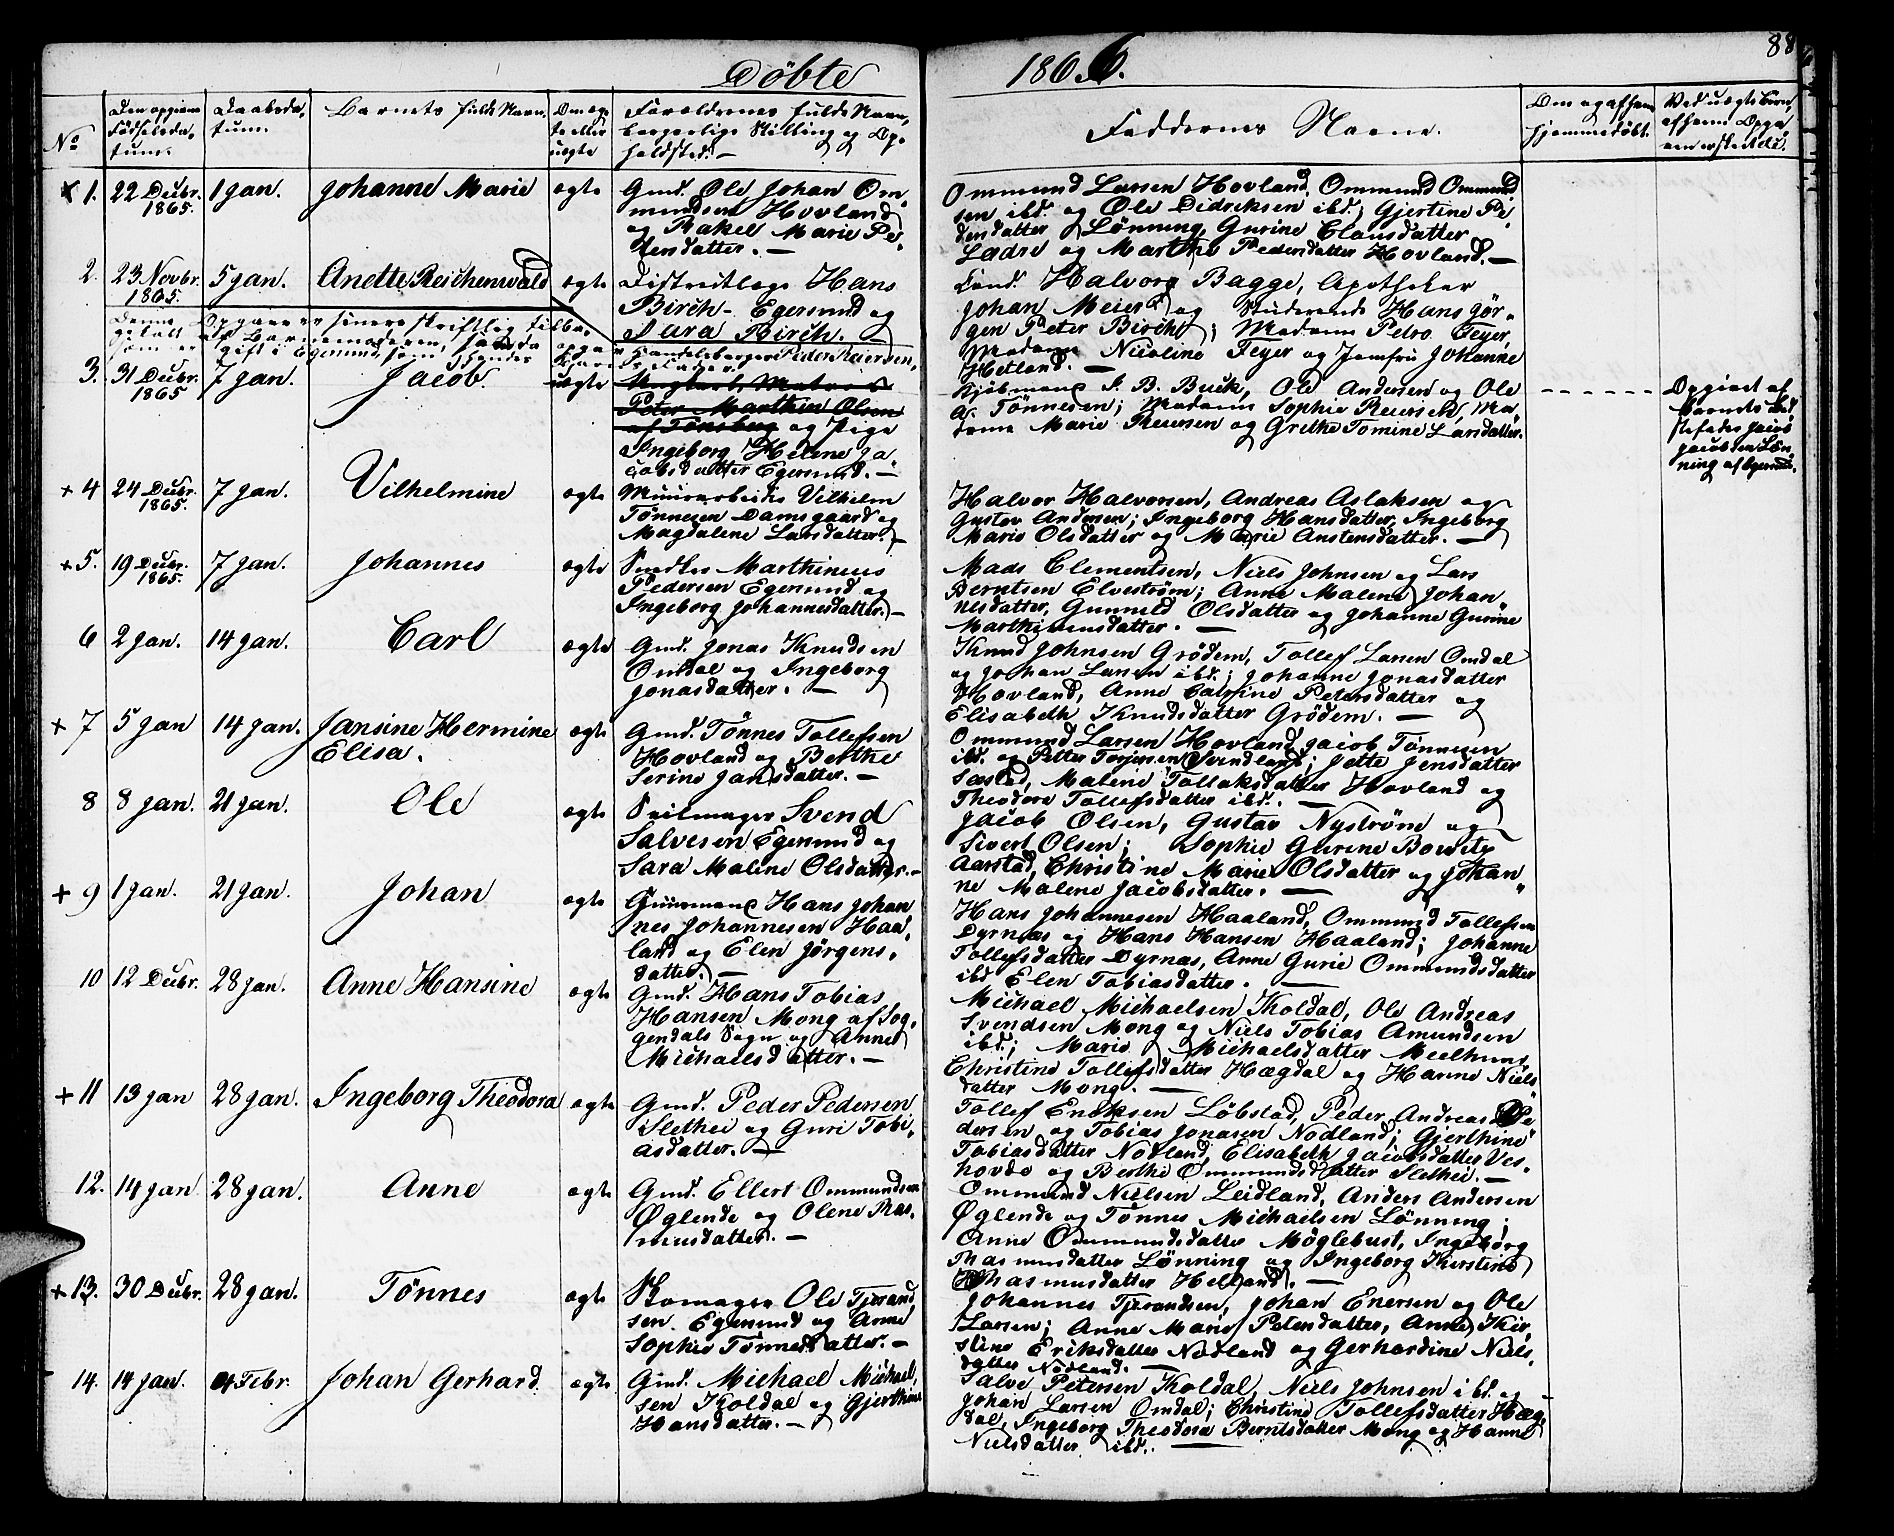 Döbte 1866.
88
No
Den opgivne Fødselsdatum.
Daabsdatum.
Barnets fulde Navn.
Om ægte eller uægte
Forældrenes fulde Navn, borgerlige Stilling og Opholdsted.—
Faddernes Navne.
Om og af hvem hjemmedöbt.
Ved uægte Børn, af hvem Opgaven er skeet.
1. 22 Decbr. 1865. 1 Jan. Johanne Marie ægte
Gmd. Ole Johan Om-
mundsen Hovland
og Rakel Marie Pe-
dersdatter.—
Ommund Larsen Hovland, Ommund Ommund
sen ibd. og Ole Didriksen ibd.; Gjertine Pe
dersdatter Lönning, Gurine Clausdatter
og Marthe Pedersdatter Hovland.—
2. 23 Novbr. 1865. 5 Jan. Anette Reichenwald ægte
Distriktlæge Hans
Birch - Egersund og
Sara Birch.—
Halvorg Bagge, Apotheker
Johan Meier og Studerende Hans Jör-
gen Peter Birch; Madame Petro Feyer,
Madame Nicoline Feyer og Jomfru Johanne
Hetland.—
3. 31 Decbr. 1865 7 Jan. Jacob. uægte
Handelsborger Peder Reiersen,
Ungkarl Matros
Peter Marthin Olsen
af Tönsberg og Pige
Ingeborg Helene Ja-
cobsdatter Egersund.—
Kjöbmand S. B. Buck, Ole Andersen og Ole
A. Tönnesen; Madame Sophie Reiersen, Ma-
dame Marie Reiersen og Grethe Tomine Larsdatter.
Opgivet af
Barnets Bed
stefader Jacob
Jacobsen Lön-
ning af Egersund.
4 24 Decbr. 1865. 7 Jan. Vilhelmine ægte
Muurarbeider Vilhelm
Tönnesen Damsgaard og
Magdalene Larsdatter.—
Halvor Halvorsen, Andreas Aslaksen og
Gustav Andersen; Ingeborg Hansdatter, Ingeborg
Marie Olsdatter og Marie Anstensdatter.—
5. 19 Decbr. 1865. 7 Jan. Johannes ægte
Snedker Marthinius
Pedersen Egersund og
Ingeborg Johannesdatter.—
Mads Clementsen, Niels Johnsen og Lars
Berntsen Elveström; Anne Malene Johan
nesdatter, Gunnild Olsdatter og Johanne Gurine
Marthinusdatter.—
6 2 Jan. 14 Jan. Carl ægte
Gmd. Jonas Knudsen
Omdal og Ingeborg
Jonasdatter.—
Knud Johnsen Grödem, Tollef Larsen Omdal
og Johan Larsen ibd.; Johanne Jonasdatter
Hovland, Anne Catrine Petersdatter og
Elisabeth Knudsdatter Grödem.—
7 5 Jan 14 Jan. Jansine Hermine Elisa. ægte
Gmd. Tönnes Tollefsen
Hovland og Berthe
Serine Jansdatter.—
Ommund Larsen Hovland, Jacob Tönnesen
ibd. og Petter Torjersen Svindland; Jette Jensdatter
Malene Tollaksdatter Hovland og
Theodore Tollefsdatter ibd.—
8 8 Jan. 21 Jan. Ole ægte
Seilmager Svend
Salvesen Egersund og
Sara Malene Olsdatter.—
Jacob Olsen, Gustav Nyströme og
Sivert Olsen; Sophie Gurine Bowitz
Aarstad, Christine Marie Olsdatter og Johan
ne Malene Jacobsdatter.—
9 1 Jan. 21 Jan. Johan ægte
Huusmand Hans Johan
nes Johannesen Haa-
land og Elen Jörgens-
datter.—
Hans Johannesen Haaland, Ommund Tollefsen
Dyrnæs og Hans Hansen Haaland; Johanne
Tollefsdatter Dyrnæs, Anne Gurie Ommundsdatter
ibd. Elen Tobiasdatter.—
10 12 Decbr. 28 Jan. Anne Hansine ægte
Gmd. Hans Tobias
Hansen Mong af Sog-
gendals Sogn og Anne
Michaelsdatter.—
Michael Michaelsen Koldal, Ole Andreas
Svendsen Mong og Niels Tobias Amundsen
ibd.; Marie Michaelsdatter Meelhuus
Christine Tollefsdatter Hægdal og Hanne Niels
datter Mong.—
11 13 Jan 28 Jan. Ingeborg Theodora ægte
Gmd. Peder Pedersen
Slethei og Guri Tobi-
asdatter.—
Tollef Eriksen Löbstad, Peder Andreas Pe-
dersen og Tobias Jonasen Nodland; Gjerthine
Tobiasdatter Nodland, Elisabeth Jacobsdatter Ves-
hovde og Berthe Ommundsdatter Slethei.—
12. 14 Jan 28 Jan. Anne ægte
Gmd. Ellert Ommundsen
Øglende og Olene Ras-
musdatter.—
Ommund Nielsen Leidland, Anders Andersen
Øglende og Tönnes Michaelsen Lönning;
Anne Ommundsdatter Möglebust, Ingeborg
Rasmusdatter Lönning og Ingeborg Kirstine
Rasmusdatter Helland.—
13. 30 Decbr. 28 Jan. Tönnes ægte
Skomager Ole Tjerand
sen Egersund og Anne
Sophie Tönnesdatter.—
Johannes Tjerandsen, Johan Enersen og Ole
Larsen; Anne Marie Petersdatter, Anne Kir-
stine Eriksdatter Nodland og Gerhardine Niels-
datter Nodland.—
14. 14 Jan. 4 Febr. Johan Gerhard. ægte
Gmd. Michael Michael-
sen Koldal og Gjerthine
Hansdatter.—
Salve Petersen Koldal, Niels Johnsen ibd. og
Johan Larsen Omdal; Christine Tollefsdatter Hæg-
dal, Ingeborg Theodora Berntsdatter Mong og Hanne
Nielsdatter ibd.—